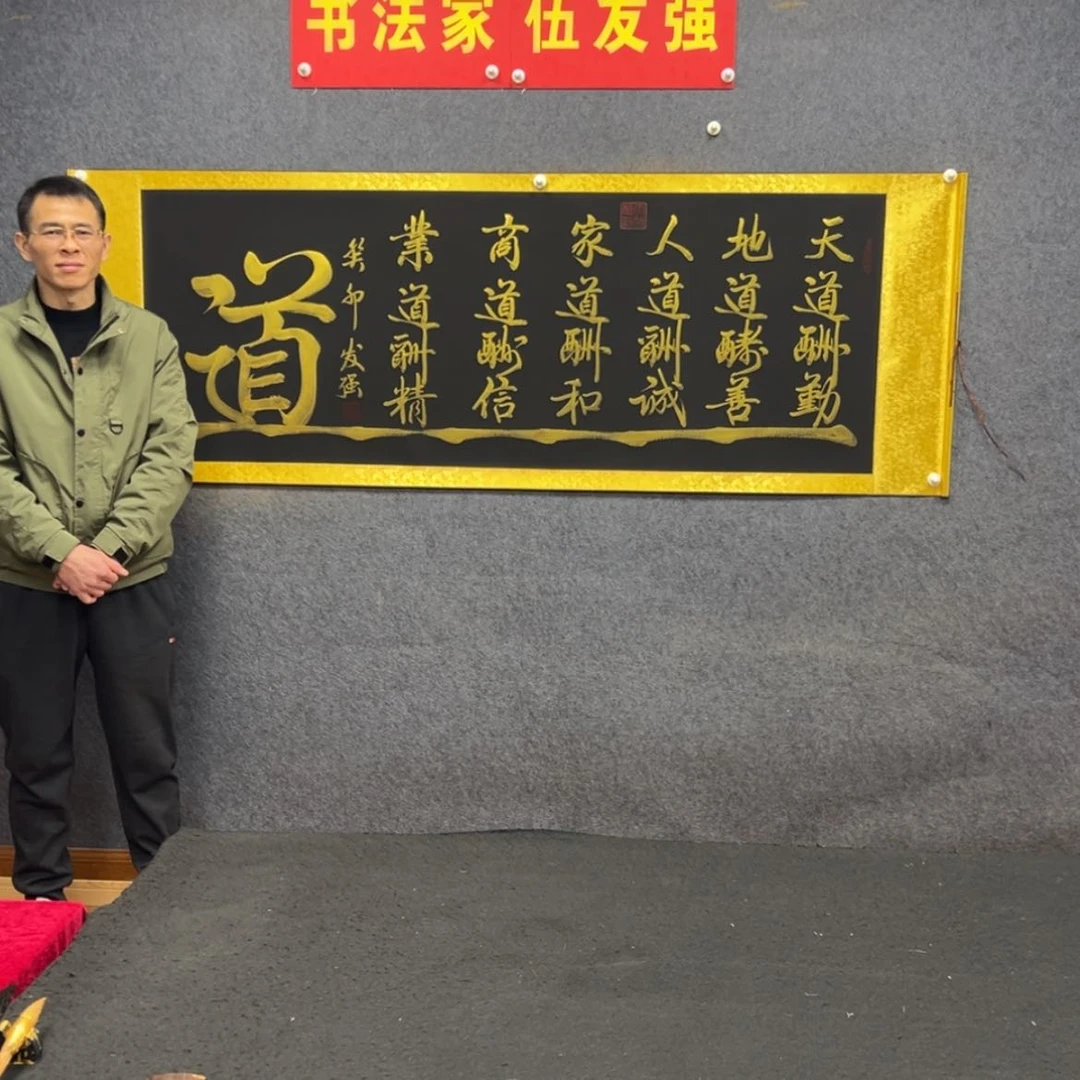 书法家 伍发强
天道酬勤
地道酬善
人道酬诚
家道酬和
商道酬信
業道酬精
癸卯 发强
道